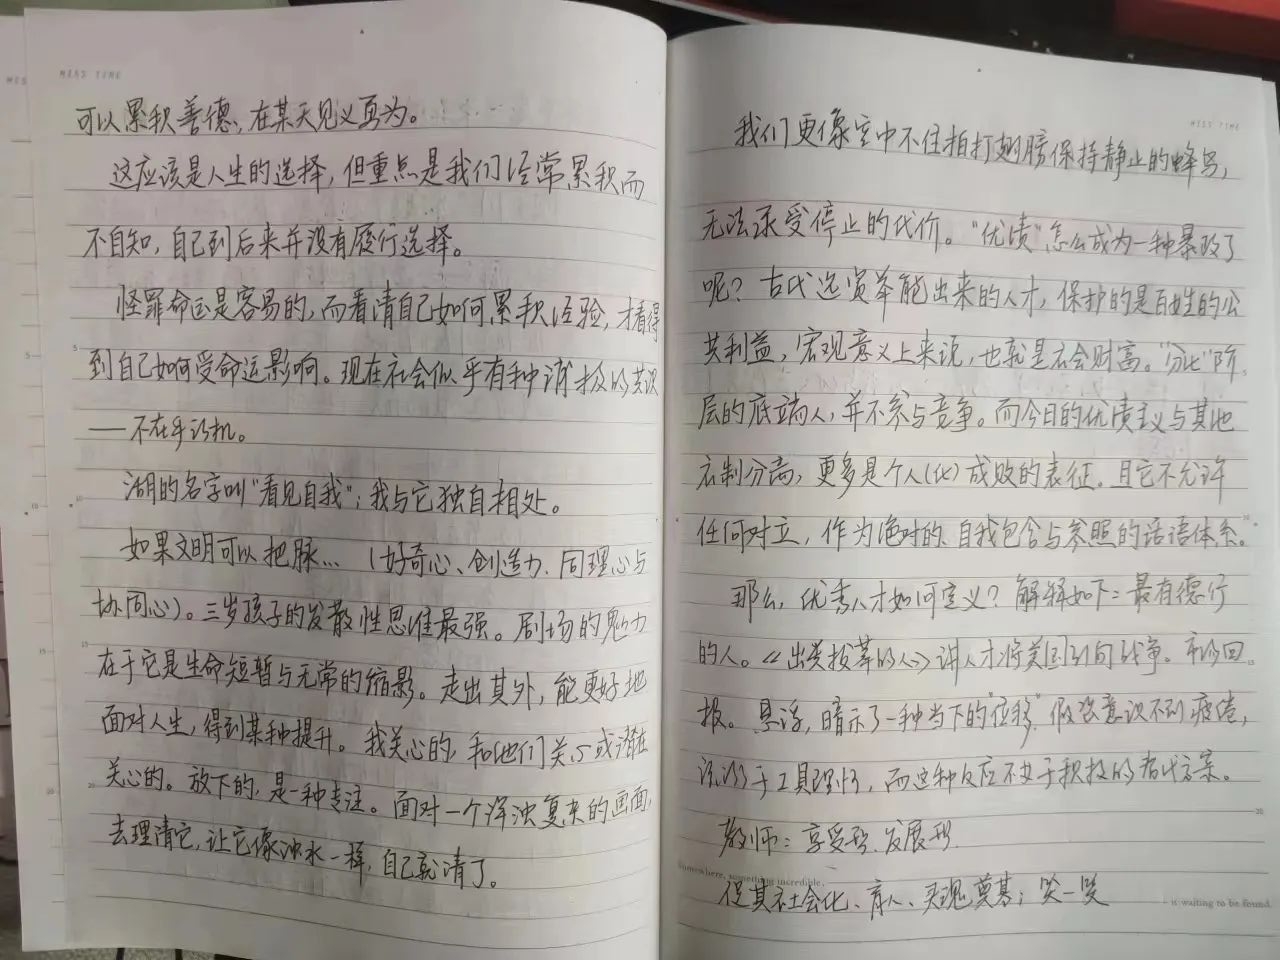 MESS TIME
可以累积善德，在某天见义勇为。
这应该是人生的选择，但重点是我们经常累积而
不自知，自己到后来并没有履行选择。
怪罪命运是容易的，而看清自己如何累积经验，才看得
到自己如何受命运影响。现在社会似乎有种消极的共识
——不在乎动机。
湖的名字叫"看见自我"；我与它独自相处。
如果文明可以把脉…（好奇心、创造力、同理心与
协同心）。三岁孩子的发散性思维最强。剧场的魅力
在于它是生命短暂与无常的缩影。走出其外，能更好地
面对人生，得到某种提升。我关心的，和他们关心或潜在
关心的。放下的，是一种专注。面对一个浑浊复杂的画面，
去理清它，让它像浊水一样，自己就清了。
MESS TIME
我们更像空中不住拍打翅膀保持静止的蜂鸟，
无法承受停止的代价。"优绩"怎么成为一种暴政了
呢？古代选贤举能出来的人才，保护的是百姓的公
共利益，宏观意义上来说，也就是社会财富。"分化"阶
层的底端人，并不参与竞争。而今日的优绩主义与其他
社制分离，更多是个人（化）成败的表征。且它不允许
任何对立，作为绝对的、自我包含与参照的话语体系。
那么，优秀人才如何定义？解释如下：最有德行
的人。《出类拔萃的人》讲人才将美国引向战争。市场回
报。悬浮，暗示了一种当下的"位移"假如意识不到疲倦，
沉溺于工具理性，而这种反应不由于积极的替代方案。
教师：享受型、发展型
somewhere, something incredible,
促其社会化、育人、实现奠基；笑一笑
is waiting to be found.